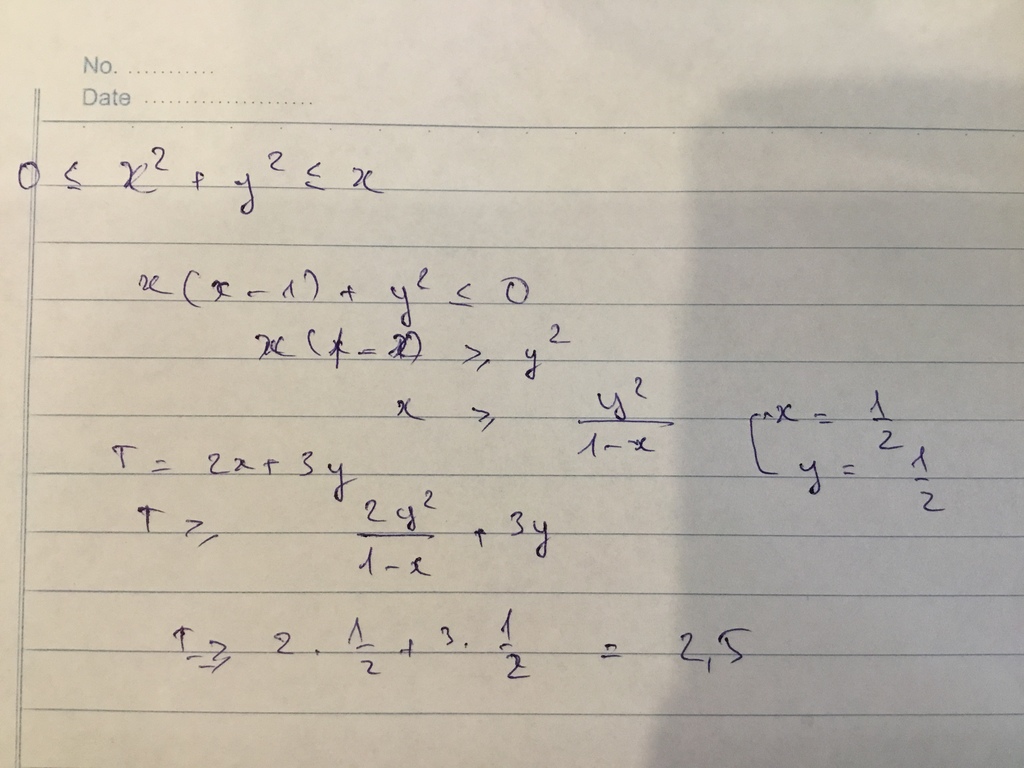 No. ...........
Date .....................
0 ≤ x² + y² ≤ x
x(x - 1) + y² ≤ 0
x(1 - x) ≥ y²
x ≥ y²/(1-x)
x = 1/2
y = 1/2
T = 2x + 3y
T ≥ 2y²/(1-x) + 3y
T ≥ 2 . 1/2 + 3 . 1/2 = 2,5